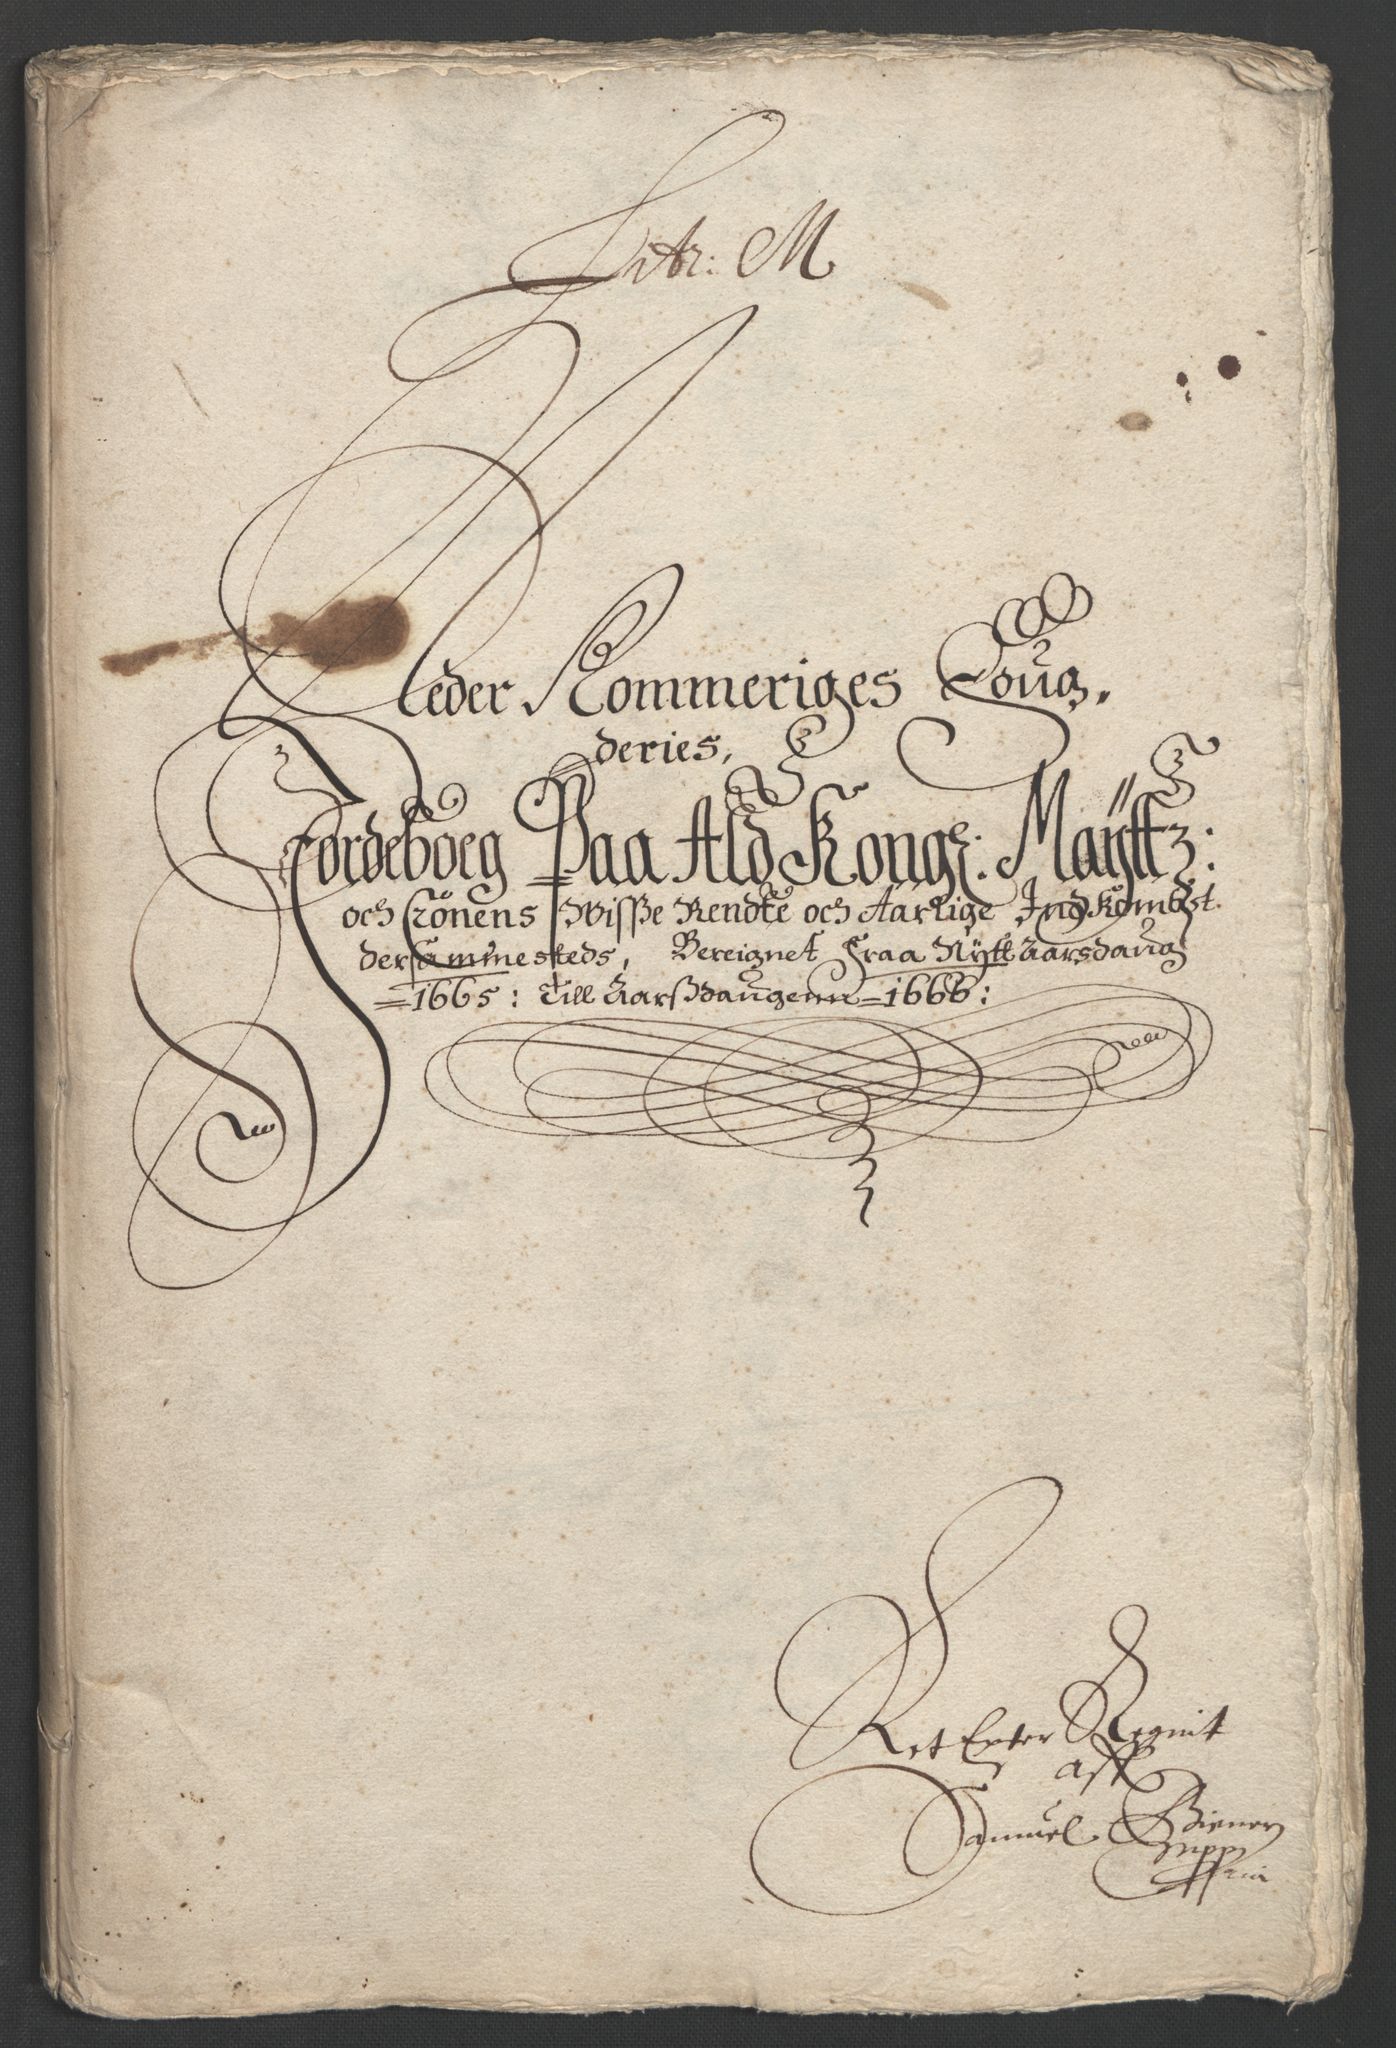 Litr: M
Neder Rommeriges Foug,
deries,
Jordeboeg Paa Ald Kongl: Maÿttz:
och Crönens Wisße Rendte och Aarlige Indkombst
dersammesteds, Bereignet Fraa Nÿtt Aarsdaug
1665: Till Aarßdaugenn 1666:
Ret Exter Regnit
aff
Samuel Biener
mpp
ria